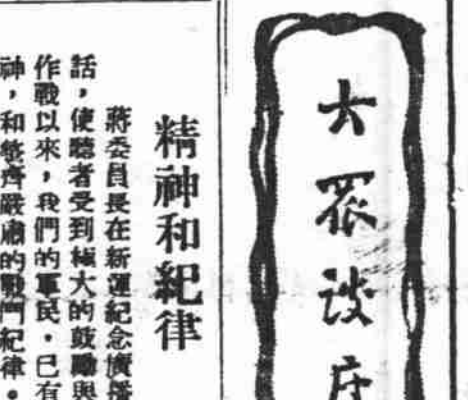 大眾談座
精神和紀律
蔣委員長在新運紀念廣播
話，使聽者受到極大的鼓勵與
作戰以來，我們的軍民，已有
神，和整齊嚴肅的戰鬥紀律。